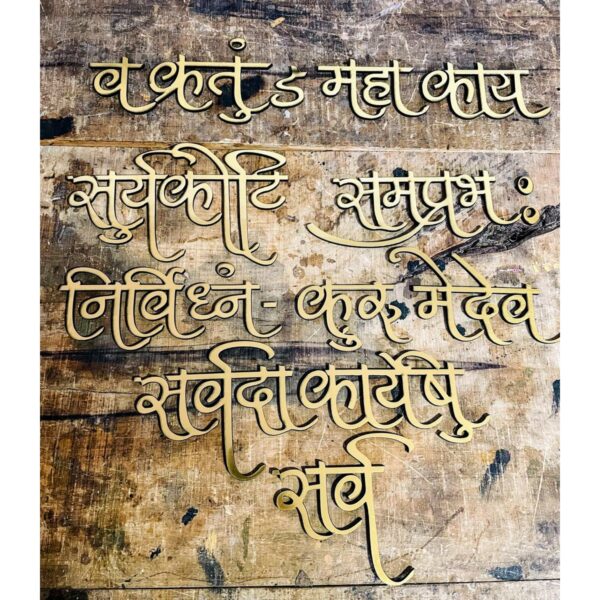 वक्रतुंड महाकाय
सुर्यकोटि समप्रभः
निर्विध्नं - कुरु मेदेव
सर्वदा कार्येषु
सर्व